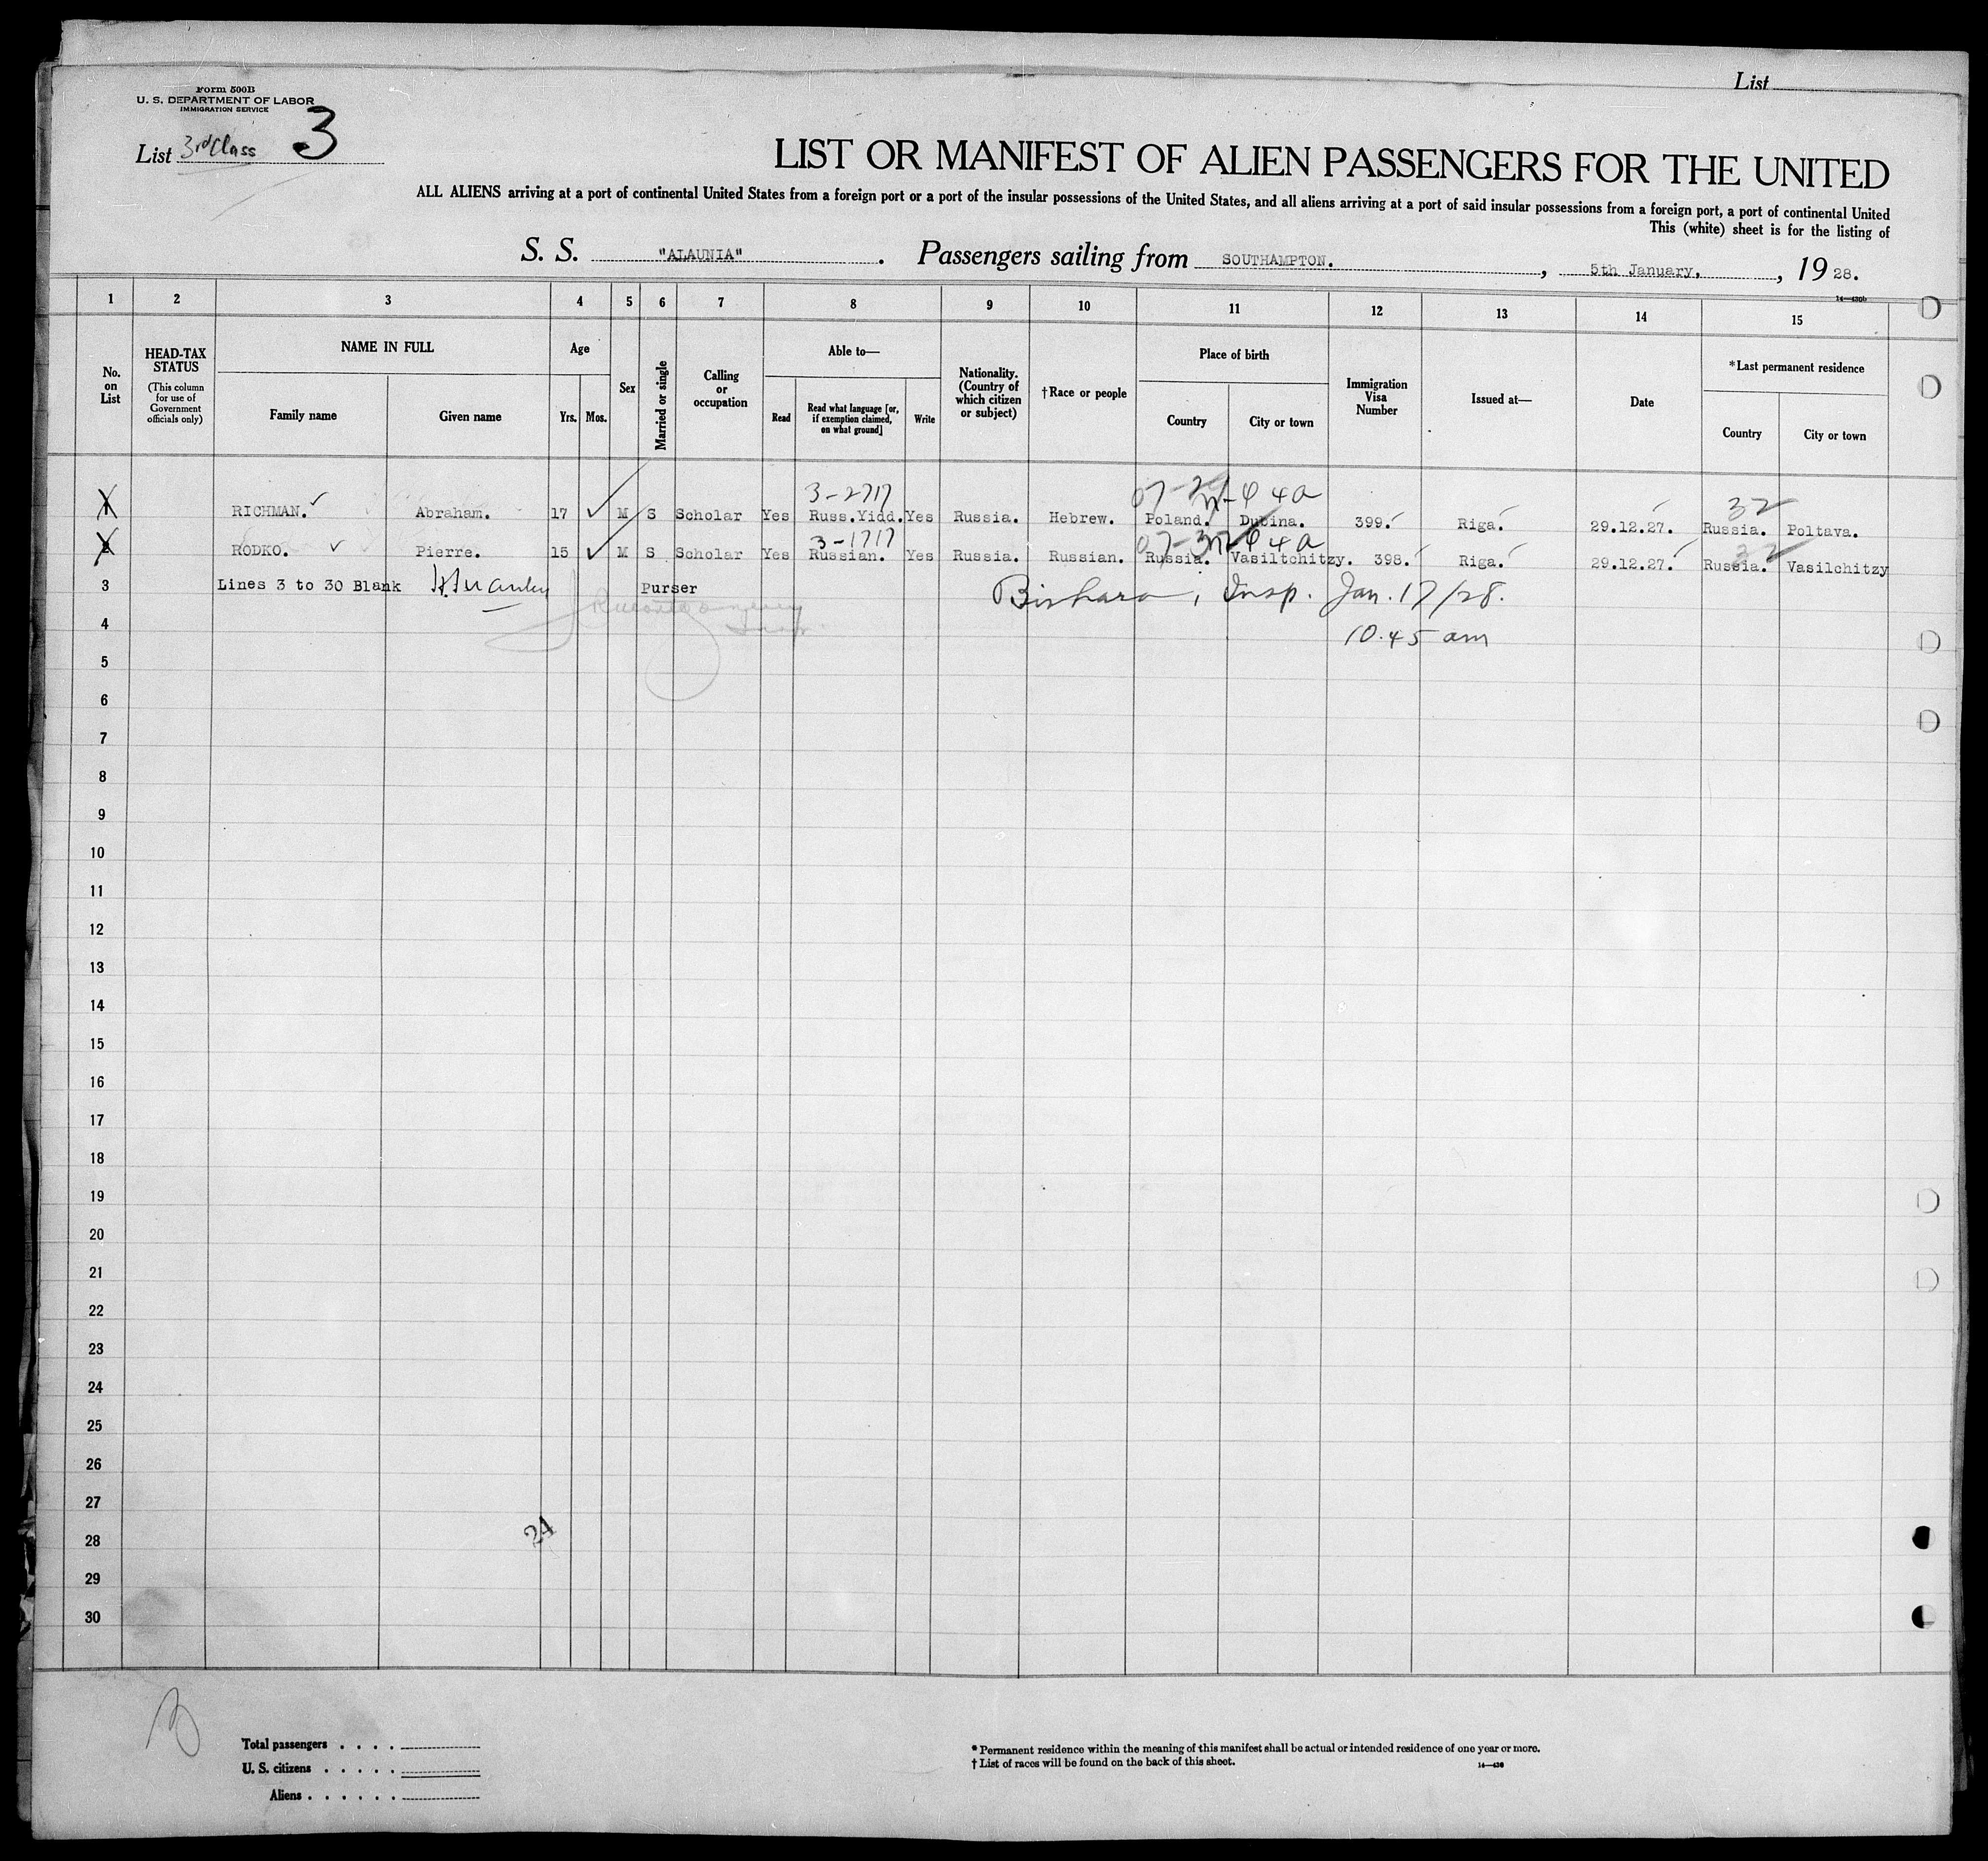 List
Form 500B
U. S. DEPARTMENT OF LABOR
IMMIGRATION SERVICE
List 3rd Class 3
LIST OR MANIFEST OF ALIEN PASSENGERS FOR THE UNITED
ALL ALIENS arriving at a port of continental United States from a foreign port or a port of the insular possessions of the United States, and all aliens arriving at a port of said insular possessions from a foreign port, a port of continental United
This (white) sheet is for the listing of
S. S. "ALAUNIA". Passengers sailing from SOUTHAMPTON., 5th January,, 19 28.
14—430b
1 2 3 4 5 6 7 8 9 10 11 12 13 14 15
No. on List
HEAD-TAX STATUS (This column for use of Government officials only)
NAME IN FULL
Family name
Given name
Age
Yrs.
Mos.
Sex
Married or single
Calling or occupation
Able to—
Read
Read what language [or, if exemption claimed, on what ground]
Write
Nationality. (Country of which citizen or subject)
†Race or people
Place of birth
Country
City or town
Immigration Visa Number
Issued at—
Date
*Last permanent residence
Country
City or town
3-2717 32
1 RICHMAN. Abraham. 17 M S Scholar Yes Russ.Yidd. Yes Russia. Hebrew. Poland. Dubina. 399. Riga. 29.12.27. Russia. Poltava.
3-1717 32
2 RODKO. Pierre. 15 M S Scholar Yes Russian. Yes Russia. Russian. Russia. Vasiltchitzy. 398. Riga. 29.12.27. Russia. Vasilchitzy
3 Lines 3 to 30 Blank Purser Bishara, Insp. Jan. 17/28.
4 10.45 am
5
6
7
8
9
10
11
12
13
14
15
16
17
18
19
20
21
22
23
24
25
26
27
28 24
29
30
Total passengers . . . .
U. S. citizens . . . . .
Aliens . . . . . .
* Permanent residence within the meaning of this manifest shall be actual or intended residence of one year or more.
† List of races will be found on the back of this sheet.
14—430